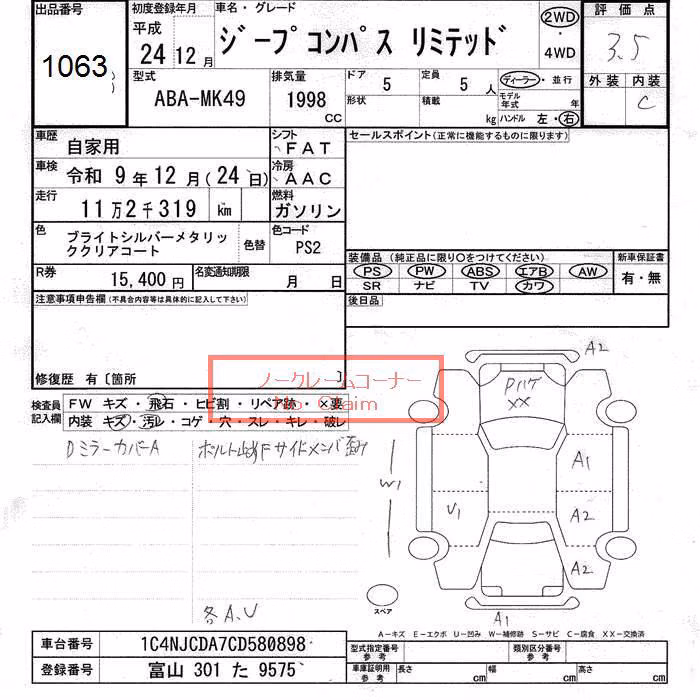 出品番号
1063
初度登録年月
平成
24 12 月
車名・グレード
ジープコンパス リミテッド
2WD
・
4WD
評価点
3.5
外装 内装
C
型式
ABA-MK49
排気量
1998
CC
ドア 5
定員 5 人
形状
積載 kg
ディーラー・並行
モデル年式 年
ハンドル 左・右
車歴 自家用
シフト FAT
車検 令和 9 年 12 月(24 日)
冷房 AAC
走行 11 万 2 千 319 km
燃料 ガソリン
色 ブライトシルバーメタリッククリアコート
色替
色コード PS2
R券 15,400 円
名変通知期限 月 日
セールスポイント(正常に機能するものに限ります)
装備品(純正品に限り○をつけてください)
PS PW ABS エアB AW
SR ナビ TV カワ
新車保証書
有・無
後日品
注意事項申告欄(不具合内容等は具体的に記入して下さい)
修復歴 有〔箇所 〕
ノークレームコーナー
No Claim
検査員記入欄
FW キズ・飛石・ヒビ割・リペア跡・×要
内装 キズ・汚レ・コゲ・穴・スレ・キレ・破レ
DミラーカバーA
各A、U
A2
Pハゲ
XX
A1
W1
U1
A2
A2
スペア
A1
A－キズ E－エクボ U－凹み W－補修跡 S－サビ C－腐食 XX－交換済
車台番号 1C4NJCDA7CD580898
登録番号 富山 301 た 9575
型式指定番号 参考
類別区分番号 参考
車庫証明用 参考
長さ cm
幅 cm
高さ cm